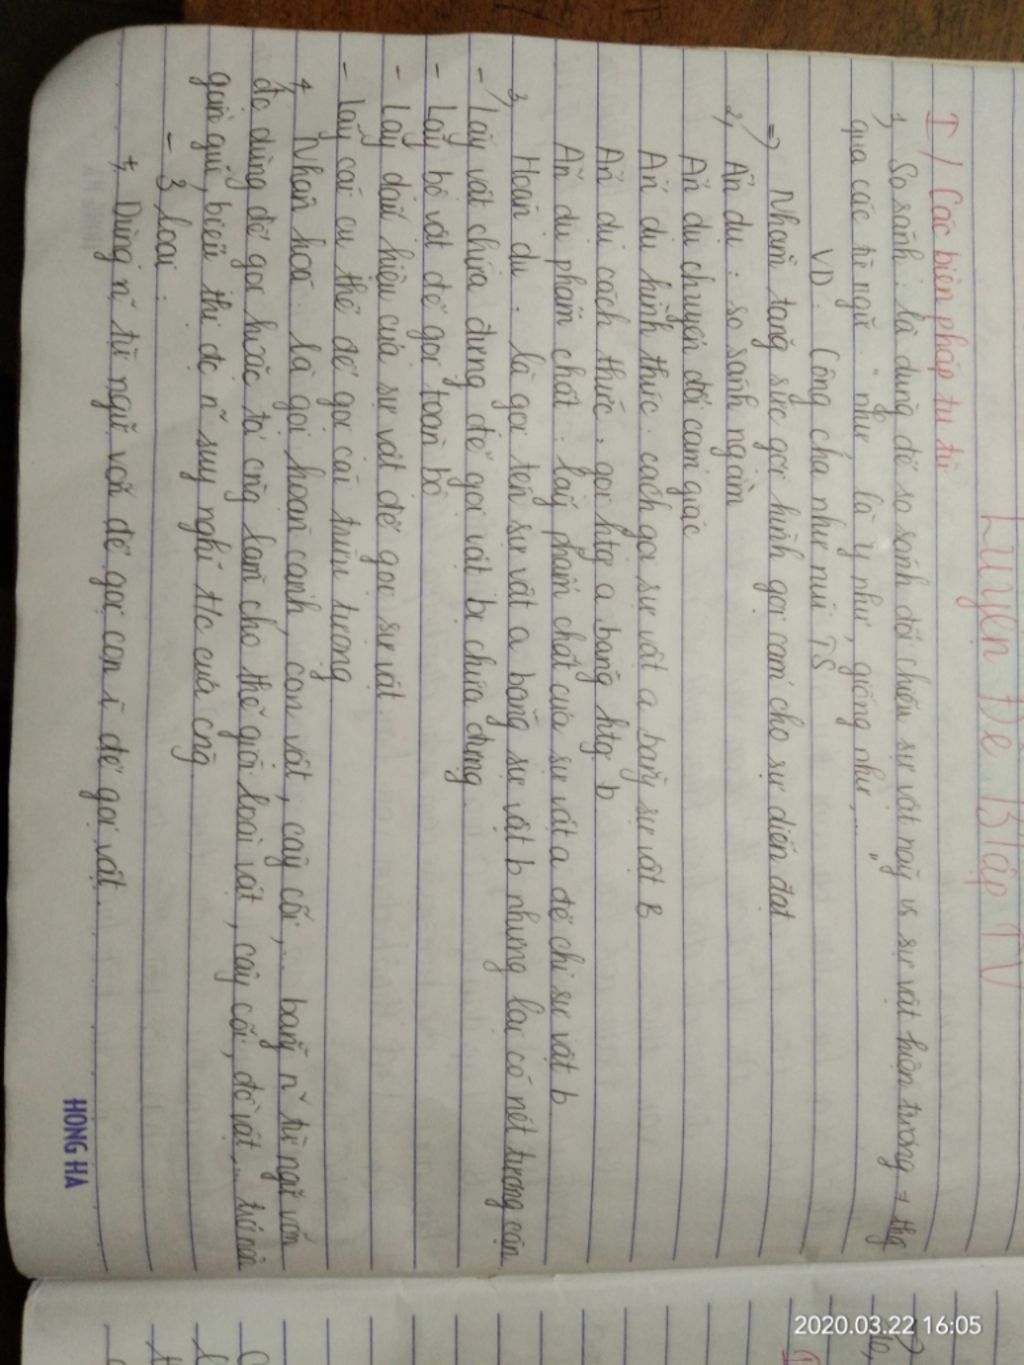 Luyện Đề Btập TV
I/ Các biện pháp tu từ
1, So sánh : là dùng để so sánh đối chiếu sự vật này vs sự vật hiện tượng → thg
qua các từ ngữ " như là y như, giống như,... "
VD : Công cha như núi TS
=> Nhằm tăng sức gợi hình gợi cảm cho sự diễn đạt
2, Ẩn dụ : so sánh ngầm
Ẩn dụ chuyển đổi cảm giác
Ẩn dụ hình thức : cách gọi sự vật a bằng sự vật B
Ẩn dụ cách thức : gọi htg a bằng htg b
Ẩn dụ phẩm chất : lấy phẩm chất của sự vật a để chỉ sự vật b
3, Hoán dụ : là gọi tên sự vật a bằng sự vật b nhưng lại có nét tương cận
- Lấy vật chứa đựng để gọi vật bị chứa đựng
- Lấy bộ vật để gọi toàn bộ
- Lấy dấu hiệu của sự vật để gọi sự vật
- Lấy cái cụ thể để gọi cái trừu tượng
4, Nhân hoá : là gọi hoàn cảnh, con vật, cây cối,... bằng n~ từ ngữ vốn
đc dùng để gọi hoặc tả cng làm cho thế giới loài vật, cây cối, đồ vật,... trở nên
gần gũi, biểu thị đc n~ suy nghĩ t/c của cng
- 3 loại :
+, Dùng n~ từ ngữ vốn để gọi con ì để gọi vật.
HONG HA
2020.03.22 16:05